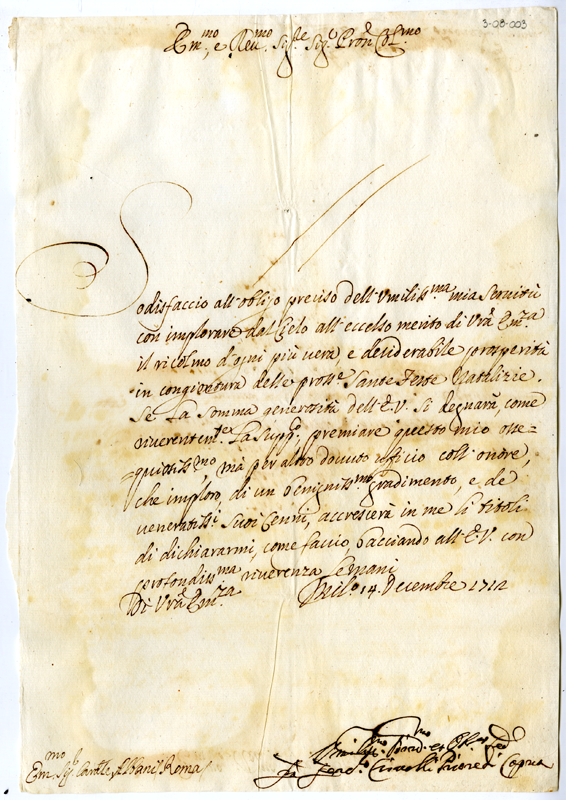 3-08-003
Em.mo, e Reu.mo Sig.re Sig.r Pron Col.mo
Sodisfaccio all'obligo preciso dell'Vmiliss.ma mia Seruitù
con implorare dal Cielo all'eccelso merito di Vra Em.za
il ricolmo d'ogni più vera, e desiderabile prosperità
in congiontura delle pross.e Sante Feste Natalizie.
Se La Somma generosità dell'E.V. Si degnarà, come
riuerentem.te La Supp.co, premiare questo mio osse=
=quiosiss.mo mà per altro douuto ufficio coll'onore,
che imploro, di un benigniss.mo gradimento, e de
veneratiss.i Suoi Cenni, accrescerà in me li titoli
di dichiararmi, come faccio, bacciando all'E.V. con
profondiss.ma riuerenza Le mani
Di Vra Em.za
14. Decembre 1712
Em.mo Sig.r Albani Roma